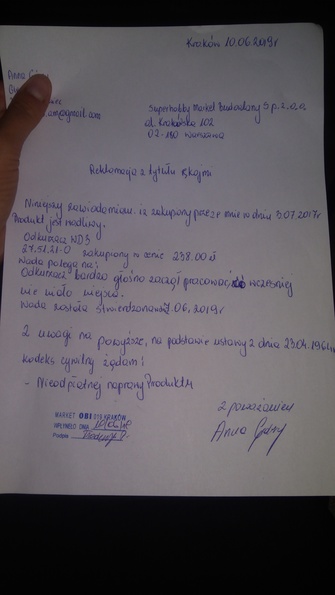 Kraków 10.06.2019r
Anna
amp@gmail.com
Superhobby Market Budowlany Sp. z.o.o
ul. Krakowiaków 102
02-180 Warszawa
Reklamacja z tytułu rękojmi
Niniejszym zawiadamiam iż zakupiony przeze mnie w dniu 3.07.2017r
Produkt jest wadliwy.
Odkurzacz WD3
27.51.21.0 zakupiony w cenie 238.00 zł
Wada polega na:
Odkurzacz bardzo głośno zaczął pracować, co wcześniej
nie miało miejsca.
Wada została stwierdzona 7.06.2019r
Z uwagi na powyższe, na podstawie ustawy z dnia 23.04.1964r
kodeks cywilny żądam:
- Nieodpłatnej naprawy Produktu
z poważaniem
Anna
MARKET OBI 019 KRAKÓW
WPŁYNĘŁO DNIA
Podpis